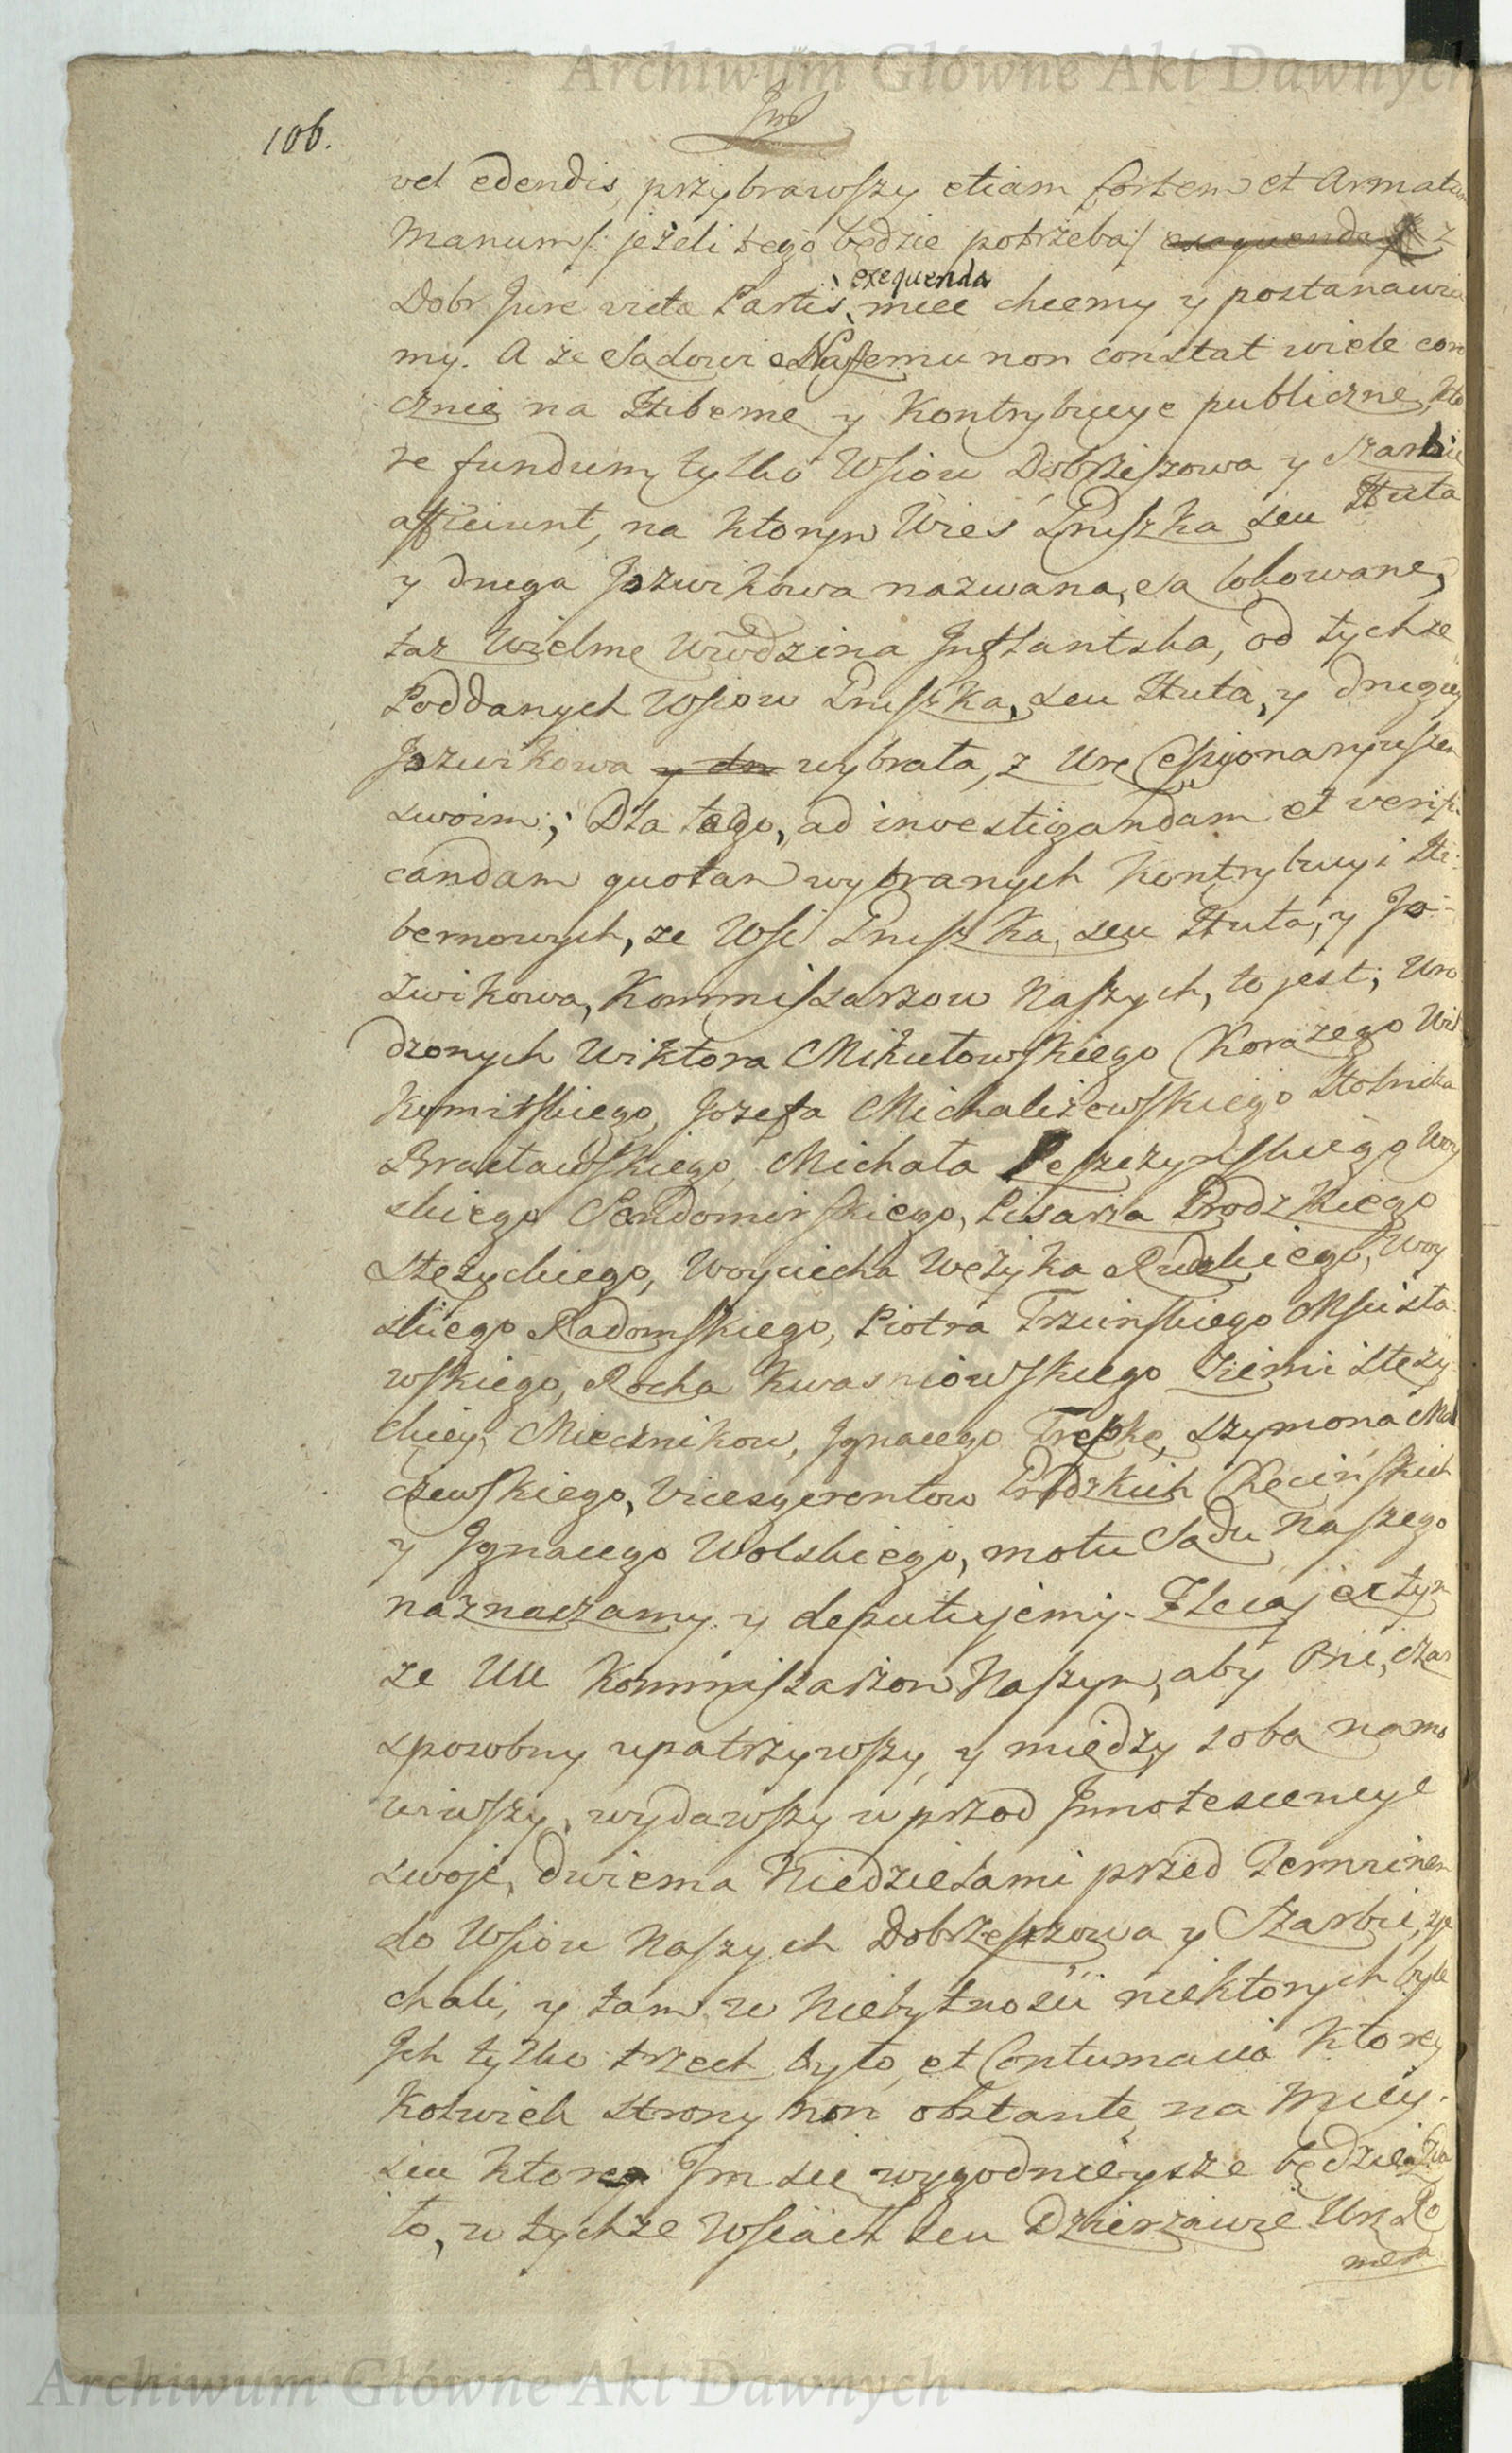 Archiwum Główne Akt Dawnych
106.
vel edendis, przybrawszy etiam fortem et Armatam
Manum /: jeżeli tego będzie potrzeba :/ exequenda z
exequenda
Dobr Jure victæ Partis, miec chcemy y postanawia
my. A że Sądowi Naszemu non constat wiele coro
cznie na Hiberne y Kontrybucye publiczne, kto
re fundum tylko Wsiow Dobrzeszowa y Skarbic
afficiunt, na ktorym Wieś Pruszka seu Huta
y druga Jozwikowa nazwana, są lokowane,
taż Wielme Urodzina Inflantska, od tychże
Poddanych Wsiow Pruszka, seu Huta, y drugiey
Jozwikowa y dr wybrała, z Ur Cessyonaryuszem
swoim; Dla tego, ad investigandam et verifi
candam quotam wybranych kontrybucyi Hi
bernowych, ze Wsi Pruszka, seu Huta, y Jo
zwikowa, Kommissarzow Naszych, to jest, Uro
dzonych Wiktora Mikułowskiego Chorążego
Józefa Michaliżewskiego Stolnika
Bracławskiego, Michała Leszczyńskiego Woy
skiego Sendomirskiego, Pisarza Grodzkiego
Stężyckiego, Woyciecha Wężyka Rudzkiego, Woy
skiego Radomskiego, Piotra Trzcinskiego Mscisła
wskiego, Rocha Kwasniowskiego Ziemi Stęży
ckiey, Miecznikow, Ignacego Trepkę, Szymona Ma
czewskiego, Vicesgerentow Grodzkich Chęcińskich
y Ignacego Wolskiego, motu Sądu Naszego
naznaczamy y deputujemy. Zlecając tym
że UU Kommissarzom Naszym, aby Oni, czas
sposobny upatrzywszy, y między sobą namo
wiwszy, wydawszy wprzod Innotescencye
swoje, dwiema Niedzielami przed Terminem
do Wsiow Naszych Dobrzeszowa y Skarbic, zje
chali, y tam w Niebytnosci niektorych byle
Ich tylko trzech było, et Contumacia ktorey
kolwiek strony non obstante, na Miey
scu ktore Im się wygodnieysze będzie zda
ło, w tychże Wsiach seu Dzierżawie Ur Do
mem
Archiwum Główne Akt Dawnych